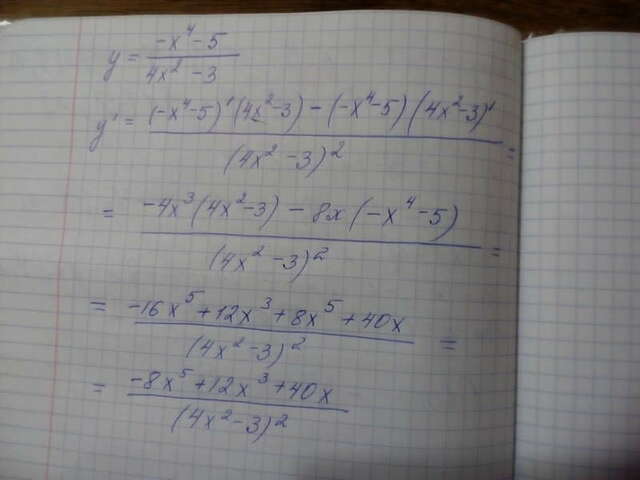 y = (-x⁴-5)/(4x²-3)
y' = ((-x⁴-5)'(4x²-3) - (-x⁴-5)(4x²-3)')/(4x²-3)² =
= (-4x³(4x²-3) - 8x(-x⁴-5))/(4x²-3)² =
= (-16x⁵+12x³+8x⁵+40x)/(4x²-3)² =
= (-8x⁵+12x³+40x)/(4x²-3)²